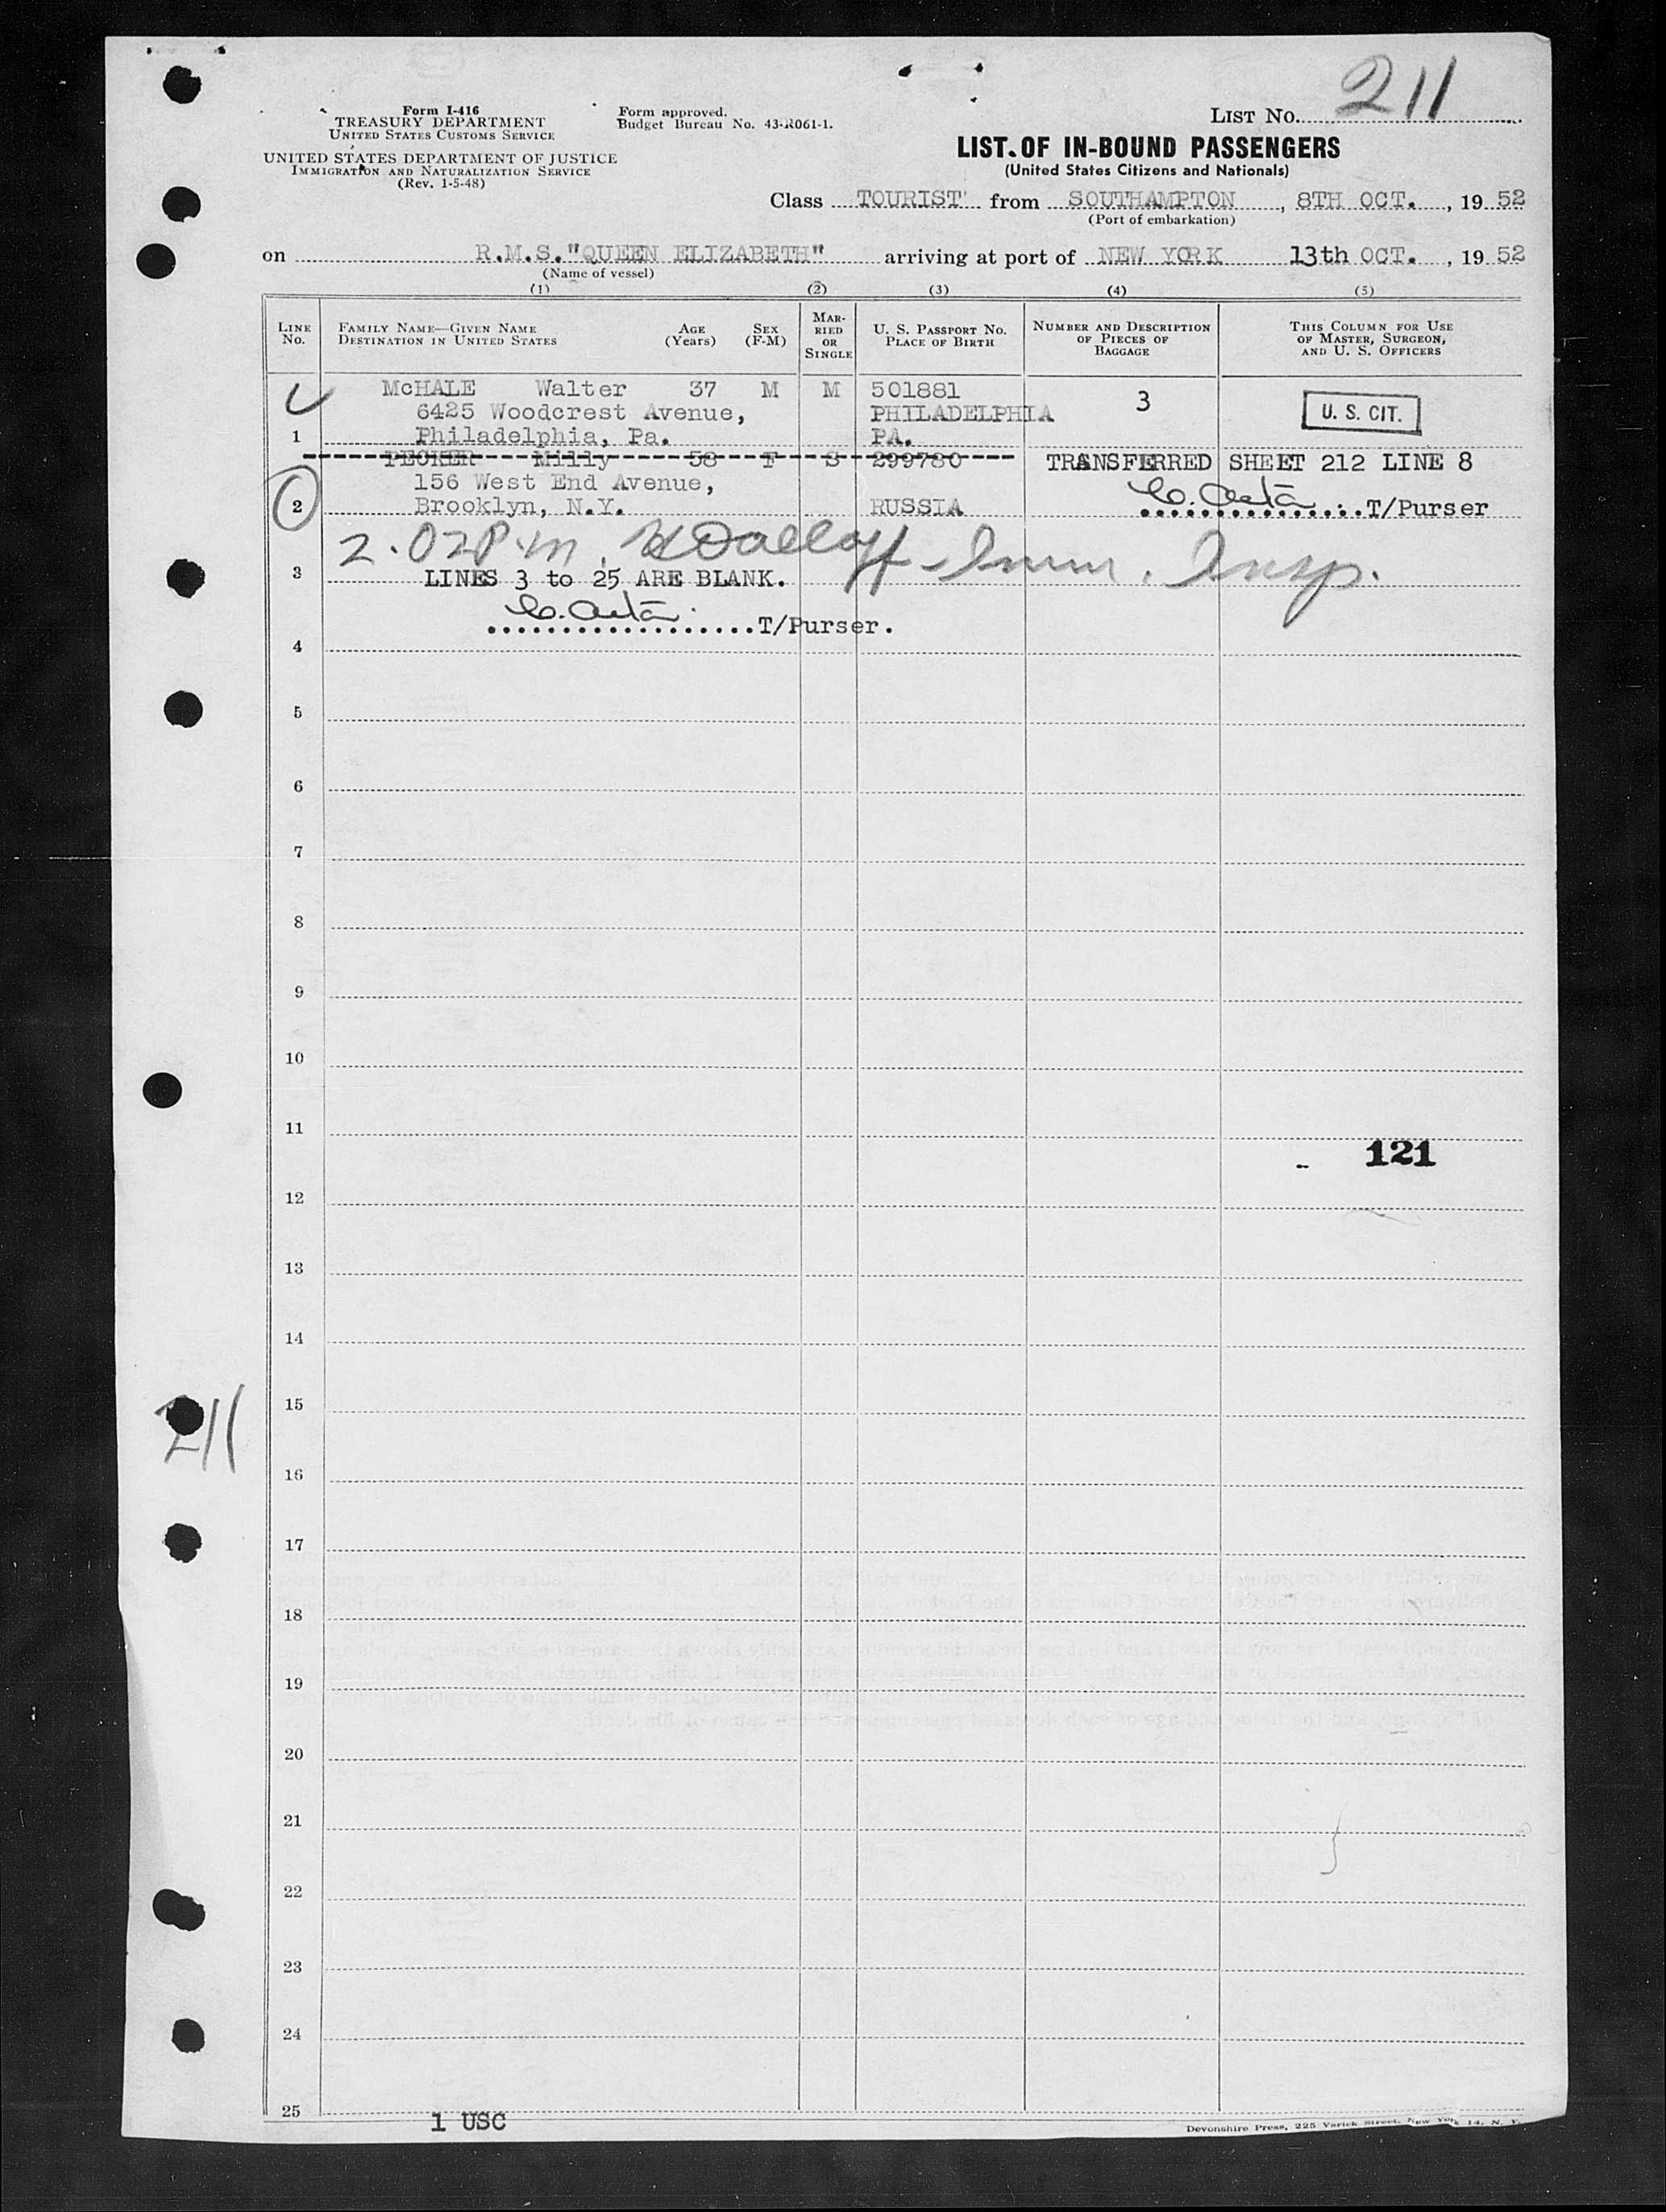 Form I-416
TREASURY DEPARTMENT
UNITED STATES CUSTOMS SERVICE
UNITED STATES DEPARTMENT OF JUSTICE
IMMIGRATION AND NATURALIZATION SERVICE
(Rev. 1-5-48)
Form approved.
Budget Bureau No. 43-R061-1.
LIST NO. 211
LIST OF IN-BOUND PASSENGERS
(United States Citizens and Nationals)
Class TOURIST from SOUTHAMPTON, 8TH OCT., 19 52
(Port of embarkation)
on R.M.S."QUEEN ELIZABETH" arriving at port of NEW YORK 13th OCT., 19 52
(Name of vessel)
(1) (2) (3) (4) (5)
LINE NO.
FAMILY NAME—GIVEN NAME
DESTINATION IN UNITED STATES
AGE (Years)
SEX (F-M)
MARRIED OR SINGLE
U. S. PASSPORT NO.
PLACE OF BIRTH
NUMBER AND DESCRIPTION OF PIECES OF BAGGAGE
THIS COLUMN FOR USE OF MASTER, SURGEON, AND U. S. OFFICERS
McHALE Walter 37 M M 501881 3 U. S. CIT.
6425 Woodcrest Avenue, PHILADELPHIA
1 Philadelphia, Pa. PA.
PECKER Milly 58 F S 299780 TRANSFERRED SHEET 212 LINE 8
156 West End Avenue,
2 Brooklyn, N.Y. RUSSIA T/Purser
2.02 P.m. Imm. Insp.
3 LINES 3 to 25 ARE BLANK.
T/Purser.
4
5
6
7
8
9
10
11
121
12
13
14
15
211
16
17
18
19
20
21
22
23
24
25
1 USC
Devonshire Press, 225 Varick Street, New York 14, N. Y.